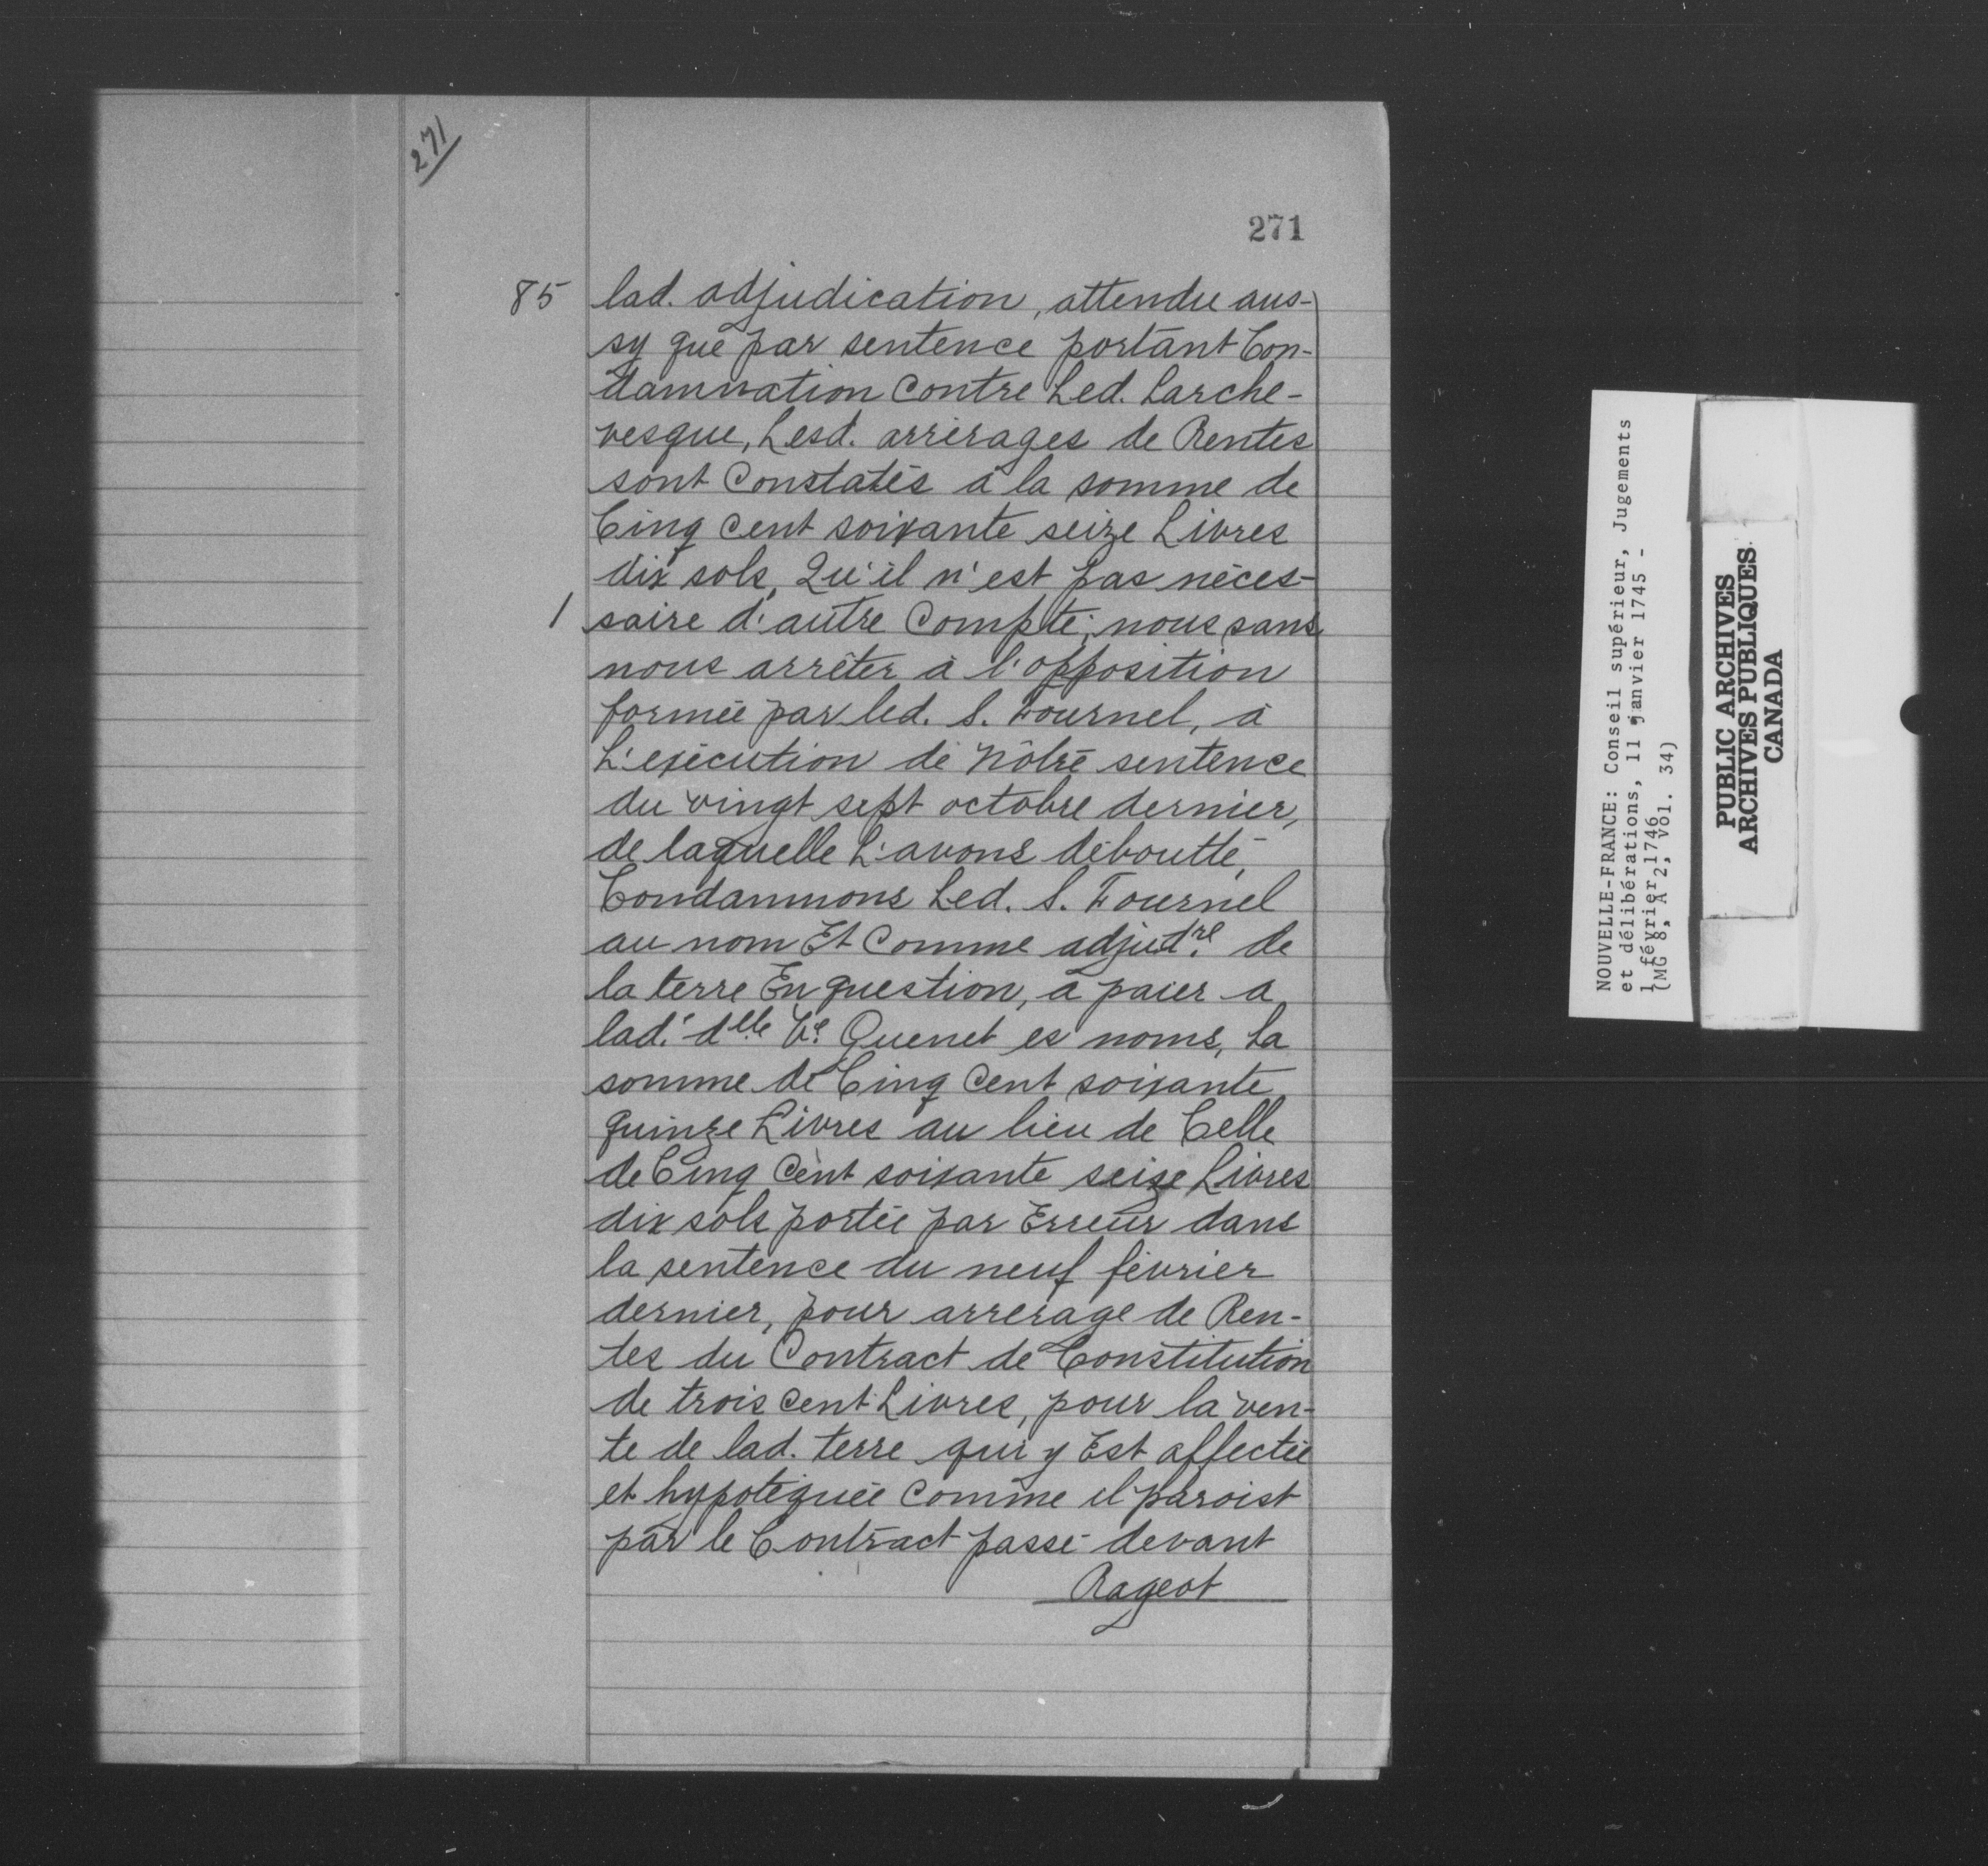 271
271
85 lad. adjudication, attendu aus-
sy que par sentence portant Con-
damnation Contre Led. Larche-
vesque, Lesd. arrérages de Rentes
sont Constatés à la somme de
Cinq Cent soixante seize Livres
dix sols, Qu'il n'est pas néces-
1 saire d'autre Compte; nous sans
nous arrêter à l'opposition
formée par led. S. Fournel, à
L'exécution de Nôtre sentence
du vingt sept octobre dernier,
de laquelle L'avons déboutté,
Condamnons Led. S. Fournel
au nom Et Comme adjud.re de
la terre En question, à paier a
lad. delle Ve Quenet es noms, La
somme de Cinq Cent soixante
quinze Livres au lieu de Celle
de Cinq Cent soixante seize Livres
dix sols portée par Erreur dans
la sentence du neuf février
dernier, pour arrerage de Ren-
tes du Contract de Constitution
de trois Cent Livres, pour la ven-
te de lad. terre qui y Est affectée
et hypotéquée Comme il paroist
par le Contract passé devant
Rageot
NOUVELLE-FRANCE: Conseil supérieur, Jugements
et délibérations, 11 janvier 1745 -
1 février 1746
(MG 8, A 2, vol. 34)
PUBLIC ARCHIVES
ARCHIVES PUBLIQUES
CANADA